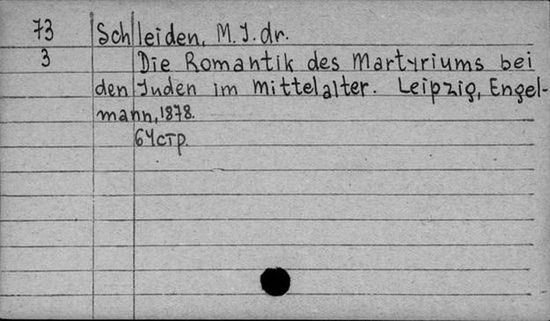 73 Schleiden, M. J. dr.
3 Die Romantik des Martyriums bei
den Juden im Mittelalter. Leipzig, Engel-
mann, 1878.
64 стр.